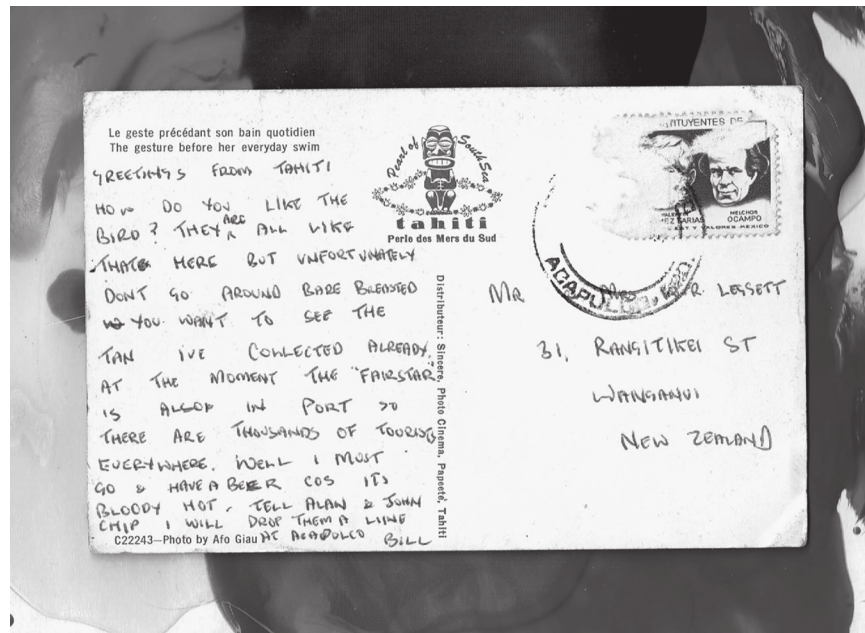 Le geste précédant son bain quotidien
The gesture before her everyday swim
GREETINGS FROM TAHITI
HOW DO YOU LIKE THE
BIRD? THEY ARE ALL LIKE
THAT HERE BUT UNFORTUNATELY
DONT GO AROUND BARE BREASTED
YOU WANT TO SEE THE
TAN I'VE COLLECTED ALREADY.
AT THE MOMENT THE "FAIRSTAR"
IS ALSO IN PORT SO
THERE ARE THOUSANDS OF TOURISTS
EVERYWHERE. WELL I MUST
GO & HAVE A BEER COS ITS
BLOODY HOT. TELL ALAN & JOHN
CHIP I WILL DROP THEM A LINE
AT ACAPULCO BILL
C22243–Photo by Afo Giau
Pearl of South Sea
tahiti
Perle des Mers du Sud
Distributeur: Sincere, Photo Cinema, Papeete, Tahiti
TITUYENTES DE
EZ FARIAS
MELCHOR
OCAMPO
EST Y VALORES MEXICO
ACAPULCO,
MR LESSETT
31, RANGITIKEI ST
WANGANUI
NEW ZEALAND